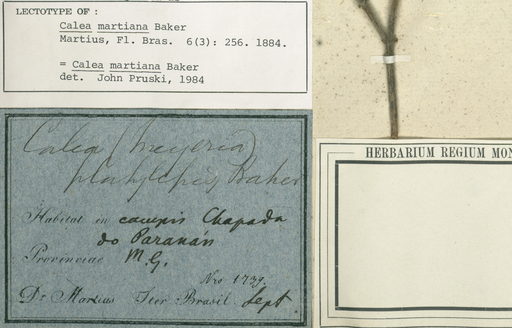 LECTOTYPE OF :
Calea martiana Baker
Martius, Fl. Bras. 6(3): 256. 1884.
= Calea martiana Baker
det. John Pruski, 1984
Calea (Meyeria)
platylepis Baker
Habitat in campis Chapada
do Paranán
Provinciae M.G.
Nro 1739.
Dr. Martius Iter Brasil. Sept.
HERBARIUM REGIUM MON